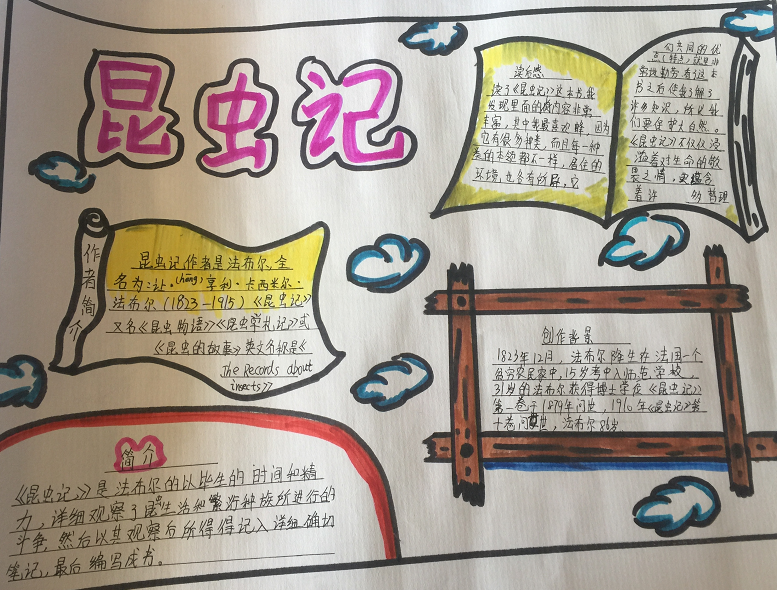 昆虫记
读后感
读了《昆虫记》这本书,我
发现里面的内容非常
丰富,其中我最喜欢蜂,因为
它有很多种类,而且每一种
的本领都不一样,居住的
环境也各有所
们共同的优
点(特点)就是非
常勤劳看这本
书之后使我了解了
许多知识,所以我
们要保护大自然。
《昆虫记》不仅仅浸
淫着对生命的敬
畏之情,更蕴含
着许 多哲理
作者简介
昆虫记作者是法布尔,全
名为:让·(hēng)亨利·卡西米尔·
法布尔(1823-1915)《昆虫记》
又名《昆虫物语》《昆虫学札记》或
《昆虫的故事》英文名称是《
The Records about
insects》
创作背景
1823年12月,法布尔降生在法国一个
贫穷农民家中,15岁考中入师范学校,
31岁的法布尔获得博士学位《昆虫记》
第一卷于1879年问世,1910年《昆虫记》第
十卷问世,法布尔86岁.
简介
《昆虫记》是法布尔的以毕生的时间和精
力,详细观察了昆虫生活和繁衍种族所进行的
斗争,然后以其观察后所得得记入详细确切
笔记,最后编写成书。